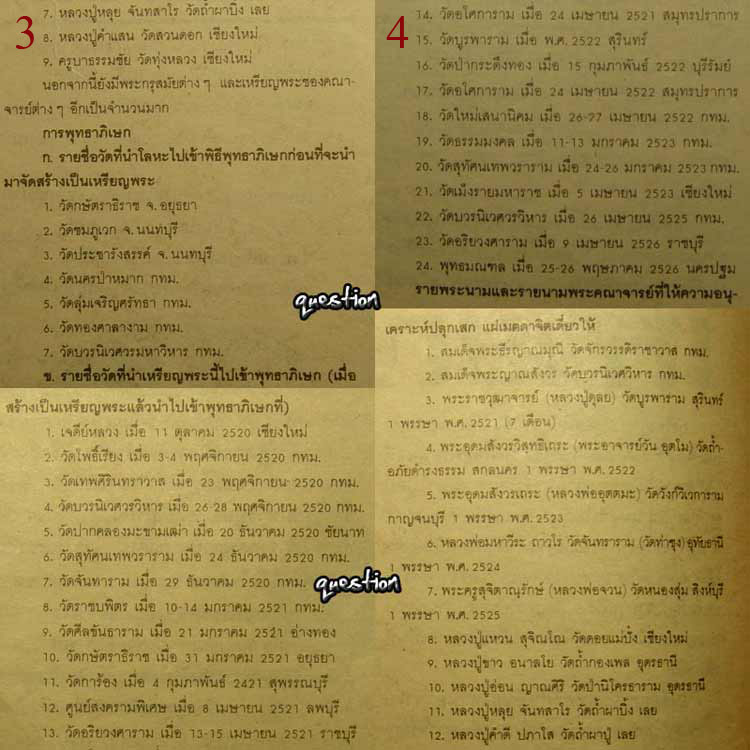 3
7. หลวงปู่หลุย จันทสาโร วัดถ้ำผาบิ้ง เลย
8. หลวงปู่คำแสน วัดสวนดอก เชียงใหม่
9. ครูบาธรรมชัย วัดทุ่งหลวง เชียงใหม่
นอกจากนี้ยังมีพระกรุสมัยต่าง ๆ และเหรียญพระของคณา-
จารย์ต่าง ๆ อีกเป็นจำนวนมาก
การพุทธาภิเษก
ก. รายชื่อวัดที่นำโลหะไปเข้าพิธีพุทธาภิเษกก่อนที่จะนำ
มาจัดสร้างเป็นเหรียญพระ
1. วัดกษัตราธิราช จ.อยุธยา
2. วัดชมภูเวก จ.นนท์บุรี
3. วัดประชารังสรรค์ จ.นนทบุรี
4. วัดนครป่าหมาก กทม.
5. วัดลุ่มเจริญศรัทธา กทม.
6. วัดทองศาลางาม กทม.
7. วัดบวรนิเวศวรมหาวิหาร กทม.
ข. รายชื่อวัดที่นำเหรียญพระนี้ไปเข้าพุทธาภิเษก (เมื่อ
question
สร้างเป็นเหรียญพระแล้วนำไปเข้าพุทธาภิเษกที่)
1. เจดีย์หลวง เมื่อ 11 ตุลาคม 2520 เชียงใหม่
2. วัดโพธิ์เรียง เมื่อ 3-4 พฤศจิกายน 2520 กทม.
3. วัดเทพศิรินทราวาส เมื่อ 23 พฤศจิกายน 2520 กทม.
4. วัดบวรนิเวศวรวิหาร เมื่อ 26-28 พฤศจิกายน 2520 กทม.
5. วัดปากคลองมะขามเฒ่า เมื่อ 20 ธันวาคม 2520 ชัยนาท
6. วัดสุทัศนเทพวราราม เมื่อ 24 ธันวาคม 2520 กทม.
7. วัดจันทาราม เมื่อ 29 ธันวาคม 2520 กทม.
question
8. วัดราชบพิตร เมื่อ 10-14 มกราคม 2521 กทม.
9. วัดศีลขันธาราม เมื่อ 21 มกราคม 2521 อ่างทอง
10. วัดกษัตราธิราช เมื่อ 31 มกราคม 2521 อยุธยา
11. วัดการ้อง เมื่อ 4 กุมภาพันธ์ 2421 สุพรรณบุรี
12. ศูนย์สงครามพิเศษ เมื่อ 8 เมษายน 2521 ลพบุรี
13. วัดอริยวงศาราม เมื่อ 13-15 เมษายน 2521 ราชบุรี
4
14. วัดอโศการาม เมื่อ 24 เมษายน 2521 สมุทรปราการ
15. วัดบูรพาราม เมื่อ พ.ศ. 2522 สุรินทร์
16. วัดป่ากระดึงทอง เมื่อ 15 กุมภาพันธ์ 2522 บุรีรัมย์
17. วัดอโศการาม เมื่อ 24 เมษายน 2522 สมุทรปราการ
18. วัดใหม่เสนานิคม เมื่อ 26-27 เมษายน 2522 กทม.
19. วัดธรรมมงคล เมื่อ 11-13 มกราคม 2523 กทม.
20. วัดสุทัศนเทพวราราม เมื่อ 24-26 มกราคม 2523 กทม.
21. วัดเม็งรายมหาราช เมื่อ 5 เมษายน 2523 เชียงใหม่
22. วัดบวรนิเวศวรวิหาร เมื่อ 26 เมษายน 2525 กทม.
23. วัดอริยวงศาราม เมื่อ 9 เมษายน 2526 ราชบุรี
24. พุทธมณฑล เมื่อ 25-26 พฤษภาคม 2526 นครปฐม
รายพระนามและรายนามพระคณาจารย์ที่ให้ความอนุ-
เคราะห์ปลุกเสก แผ่เมตตาจิตเดี่ยวให้
1. สมเด็จพระธีรญาณมุนี วัดจักรวรรดิราชาวาส กทม.
2. สมเด็จพระญาณสังวร วัดบวรนิเวศวิหาร กทม.
3. พระราชวุฒาจารย์ (หลวงปู่ดุลย) วัดบูรพาราม สุรินทร์
1 พรรษา พ.ศ. 2521 (7 เดือน)
4. พระอุดมสังวรวิสุทธิเถระ (พระอาจารย์วัน อุตโม) วัดถ้ำ-
อภัยดำรงธรรม สกลนคร 1 พรรษา พ.ศ. 2522
5. พระอุดมสังวรเถระ (หลวงพ่ออุตตมะ) วัดวังก์วิเวการาม
กาญจนบุรี 1 พรรษา พ.ศ. 2523
6. หลวงพ่อมหาวีระ ถาวโร วัดจันทราราม (วัดท่าซุง) อุทัยธานี
1 พรรษา พ.ศ. 2524
7. พระครูสุจิตาณุรักษ์ (หลวงพ่อจวน) วัดหนองสุ่ม สิงห์บุรี
1 พรรษา พ.ศ. 2525
8. หลวงปู่แหวน สุจิณโณ วัดดอยแม่ปั๋ง เชียงใหม่
9. หลวงปู่ขาว อนาลโย วัดถ้ำกองเพล อุดรธานี
10. หลวงปู่อ่อน ญาณศิริ วัดป่านิโครธาราม อุดรธานี
11. หลวงปู่หลุย จันทสาโร วัดถ้ำผาบิ้ง เลย
12. หลวงปู่คำดี ปภาโส วัดถ้ำผาปู่ เลย